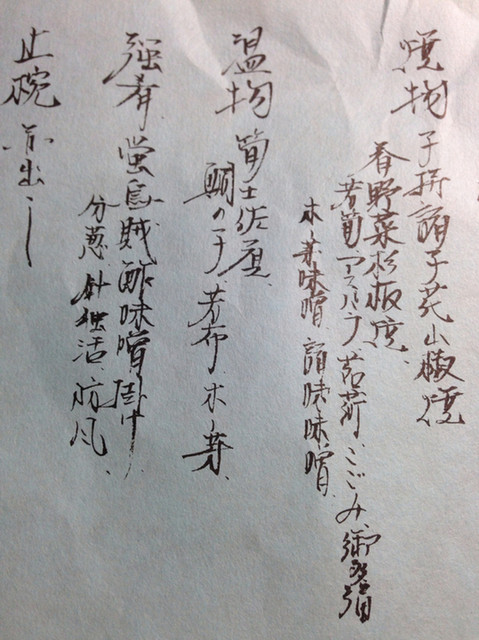 焼物 子持諸子花山椒焼
春野菜杉板焼、
若筍、アスパラ、茗荷、こごみ、御多福
木ノ芽味噌、諸味味噌、
温物 筍土佐煮、
鯛の子、若布、木ノ芽、
強肴 蛍烏賊酢味噌掛け
分葱、針独活、防風、
止椀 赤出し